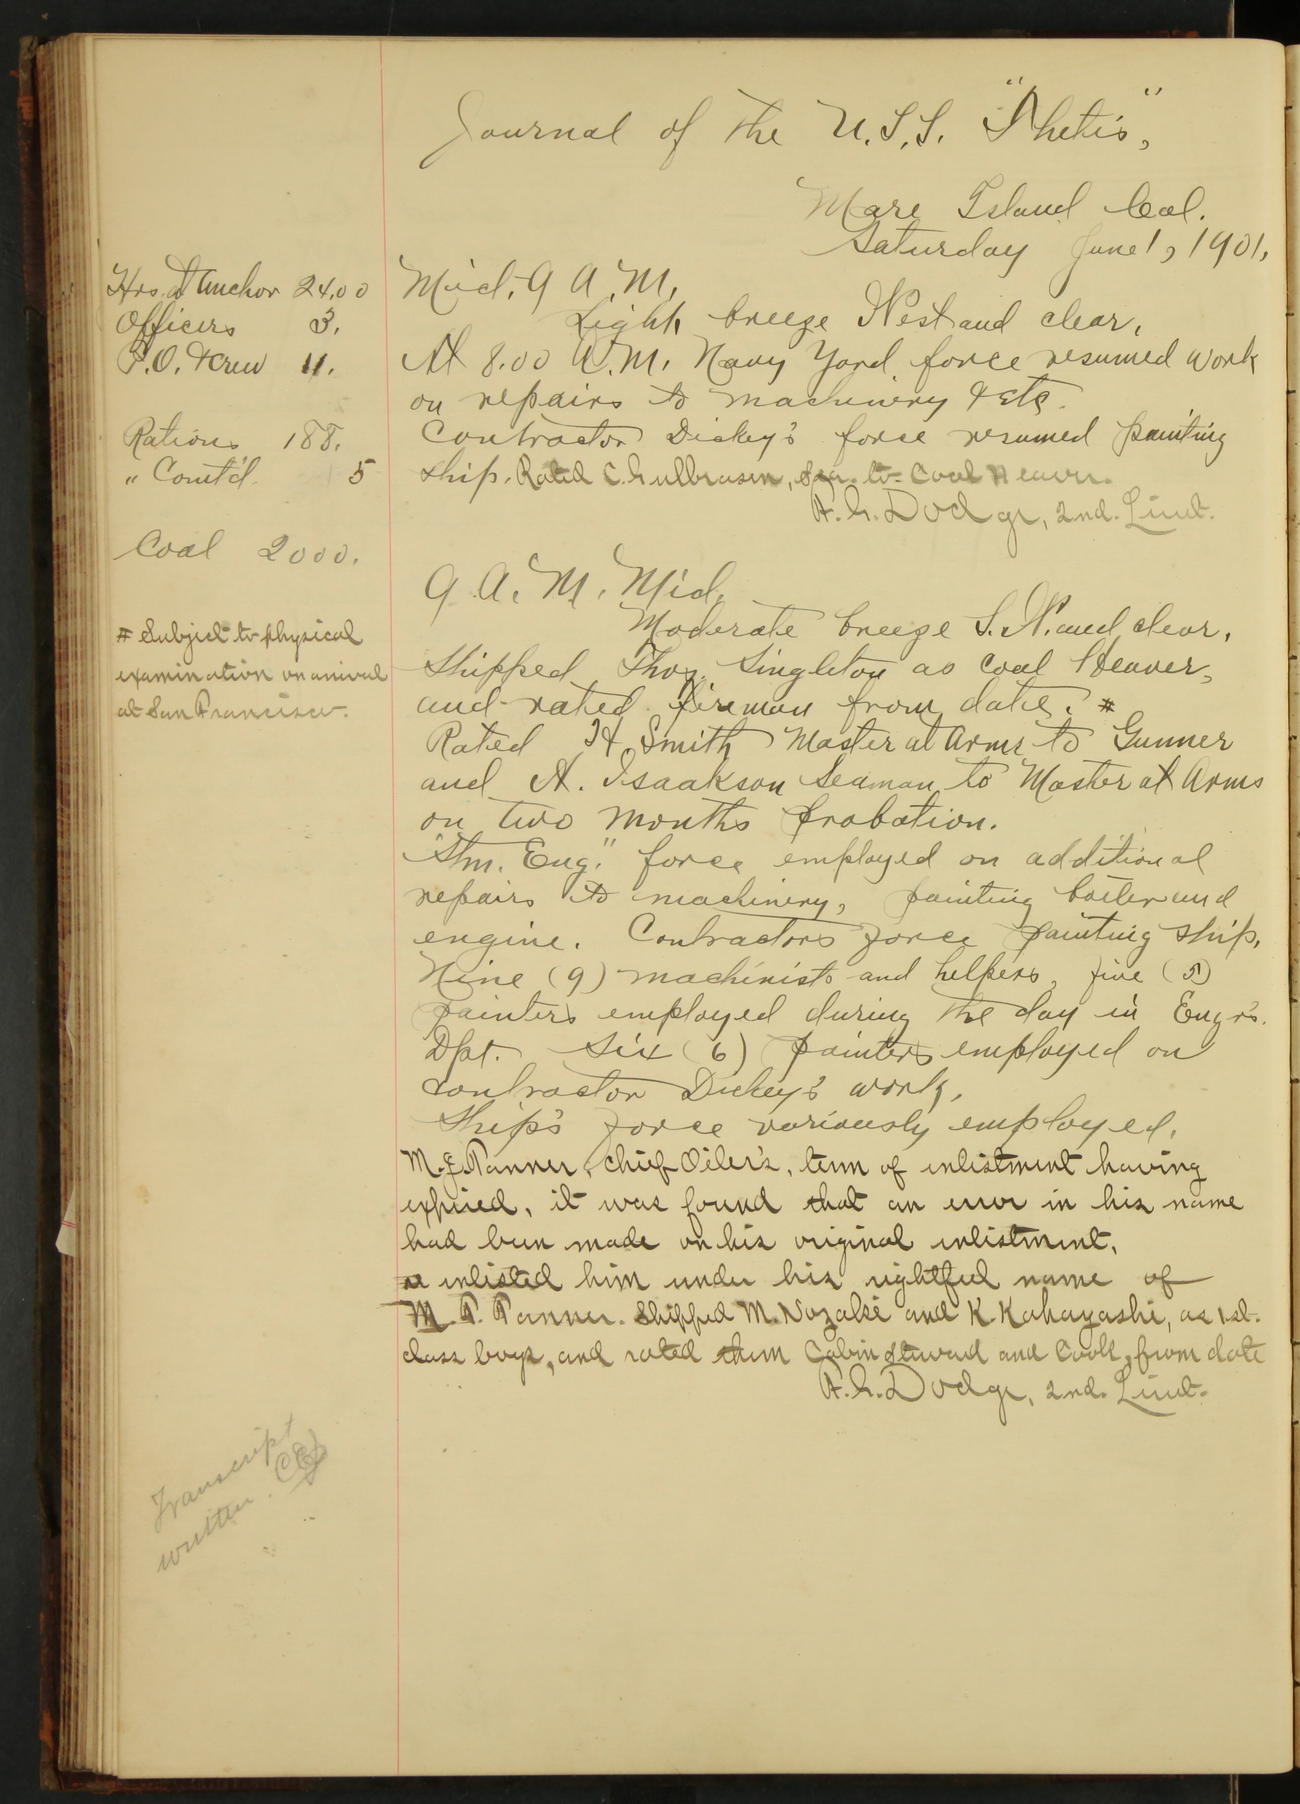 Journal of the U.S.S. "Thetis",
Mare Island Cal.
Saturday June 1, 1901,
Hrs. at Anchor 24.00
Officers 3.
P.O. & Crew 11.
Rations 188.
" Comt'd. 5
Coal 2000.
# Subject to physical
examination on arrival
at San Francisco.
Mid. 9 A.M.
Light breeze West and clear,
At 8.00 A.M. Navy Yard force resumed work
on repairs to machinery & etc.
Contractor Dickey's force resumed painting
ship. Rated C. Gulbrasen, Sea. to Coal Heaver.
F. G. Dodge, 2nd. Lieut.
9 A.M. Mid,
Moderate breeze S.W. and clear,
Shipped Thos. Singleton as Coal Heaver,
and rated fireman from date. #
Rated H. Smith Master at Arms to Gunner
and A. Isaakson Seaman to Master at Arms
on two months probation.
"Stm. Eng." force employed on additional
repairs to machinery, painting boiler and
engine. Contractors force painting ship,
Nine (9) machinists and helpers, five (5)
painters employed during the day in Engr's.
Dpt. Six (6) painters employed on
contractor Dickey's work,
Ship's force variously employed.
M. J. Tanner, Chief Oiler's, term of enlistment having
expired, it was found that an error in his name
had been made on his original enlistment,
re enlisted him under his rightful name of
M. P. Tanner. Shipped M. Nozaki and K. Kobayashi, as 1st.
class boys, and rated them Cabin Steward and Cook, from date
F. G. Dodge, 2nd. Lieut.
Transcript
written.